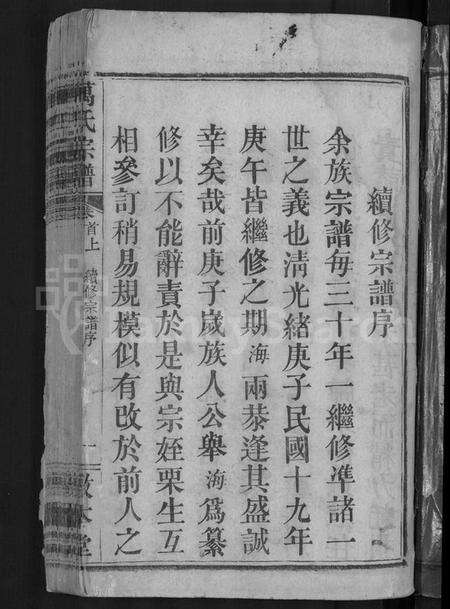 續修宗譜序
余族宗譜每三十年一繼修準諸一
世之義也清光緒庚子民國十九年
庚午皆繼修之期海兩恭逢其盛誠
幸矣哉前庚子歲族人公舉海為纂
修以不能辭責於是與宗姪栗生互
相參訂稍易規模似有改於前人之
萬氏宗譜
卷首上
續修宗譜序
一
敦本堂